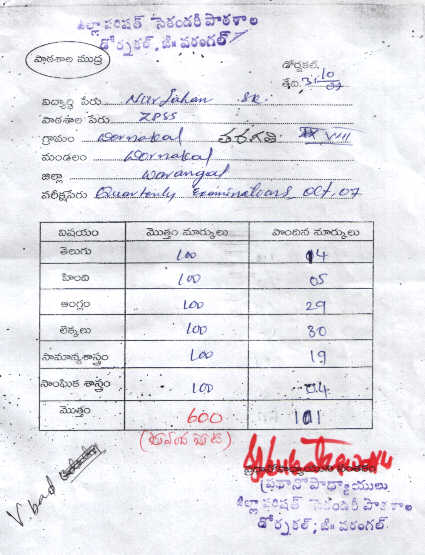 జిల్లా పరిషత్ సెకండరీ పాఠశాల
డోర్నకల్, జి॥ వరంగల్
పాఠశాల ముద్ర
డోర్నకల్,
తేది. 31-10-07
విద్యార్థి పేరు Nur Jahan SK.
పాఠశాల పేరు ZPSS
గ్రామం Dornakal తరగతి VIII
మండలం Dornakal
జిల్లా Warangal
పరీక్షపేరు Quarterly Examinations, Oct, 07
విషయం మొత్తం మార్కులు పొందిన మార్కులు
తెలుగు 100 14
హింది 100 05
ఆంగ్లం 100 29
లెక్కలు 100 30
సామాన్యశాస్త్రం 100 19
సాంఘిక శాస్త్రం 100 04
మొత్తం 600 101
V. bad
ప్రధానోపాధ్యాయుల సంతకం
ప్రధానోపాధ్యాయులు
జిల్లా పరిషత్ సెకండరీ పాఠశాల
డోర్నకల్, జి॥ వరంగల్.